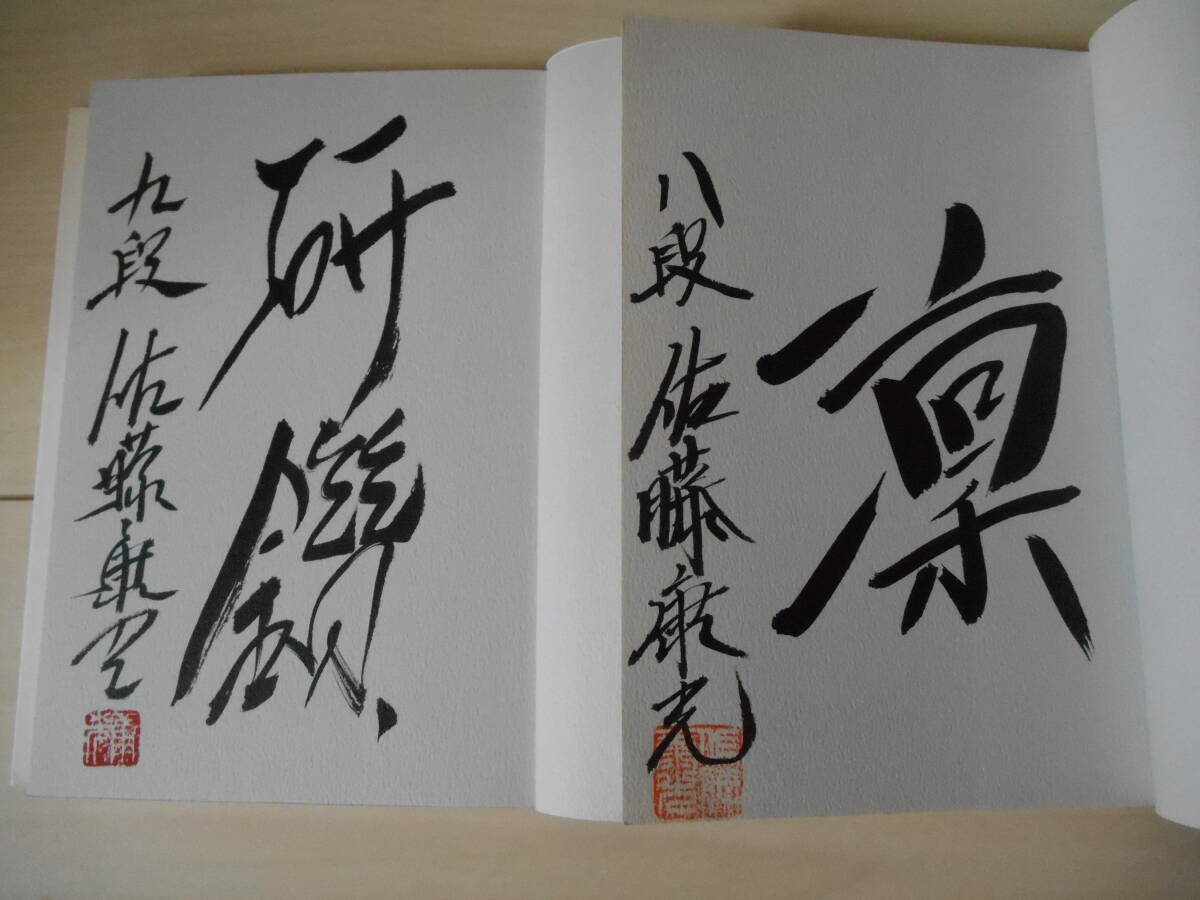 凛
八段 佐藤康光
研鑽
九段 佐藤康光